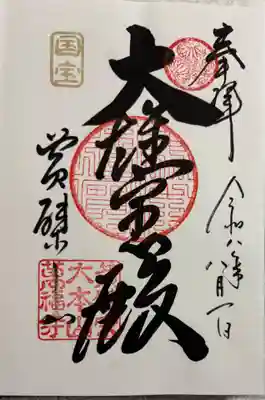 奉拝
令和八年八月一日
大雄宝殿
黄檗山
国宝
大本山
萬福寺